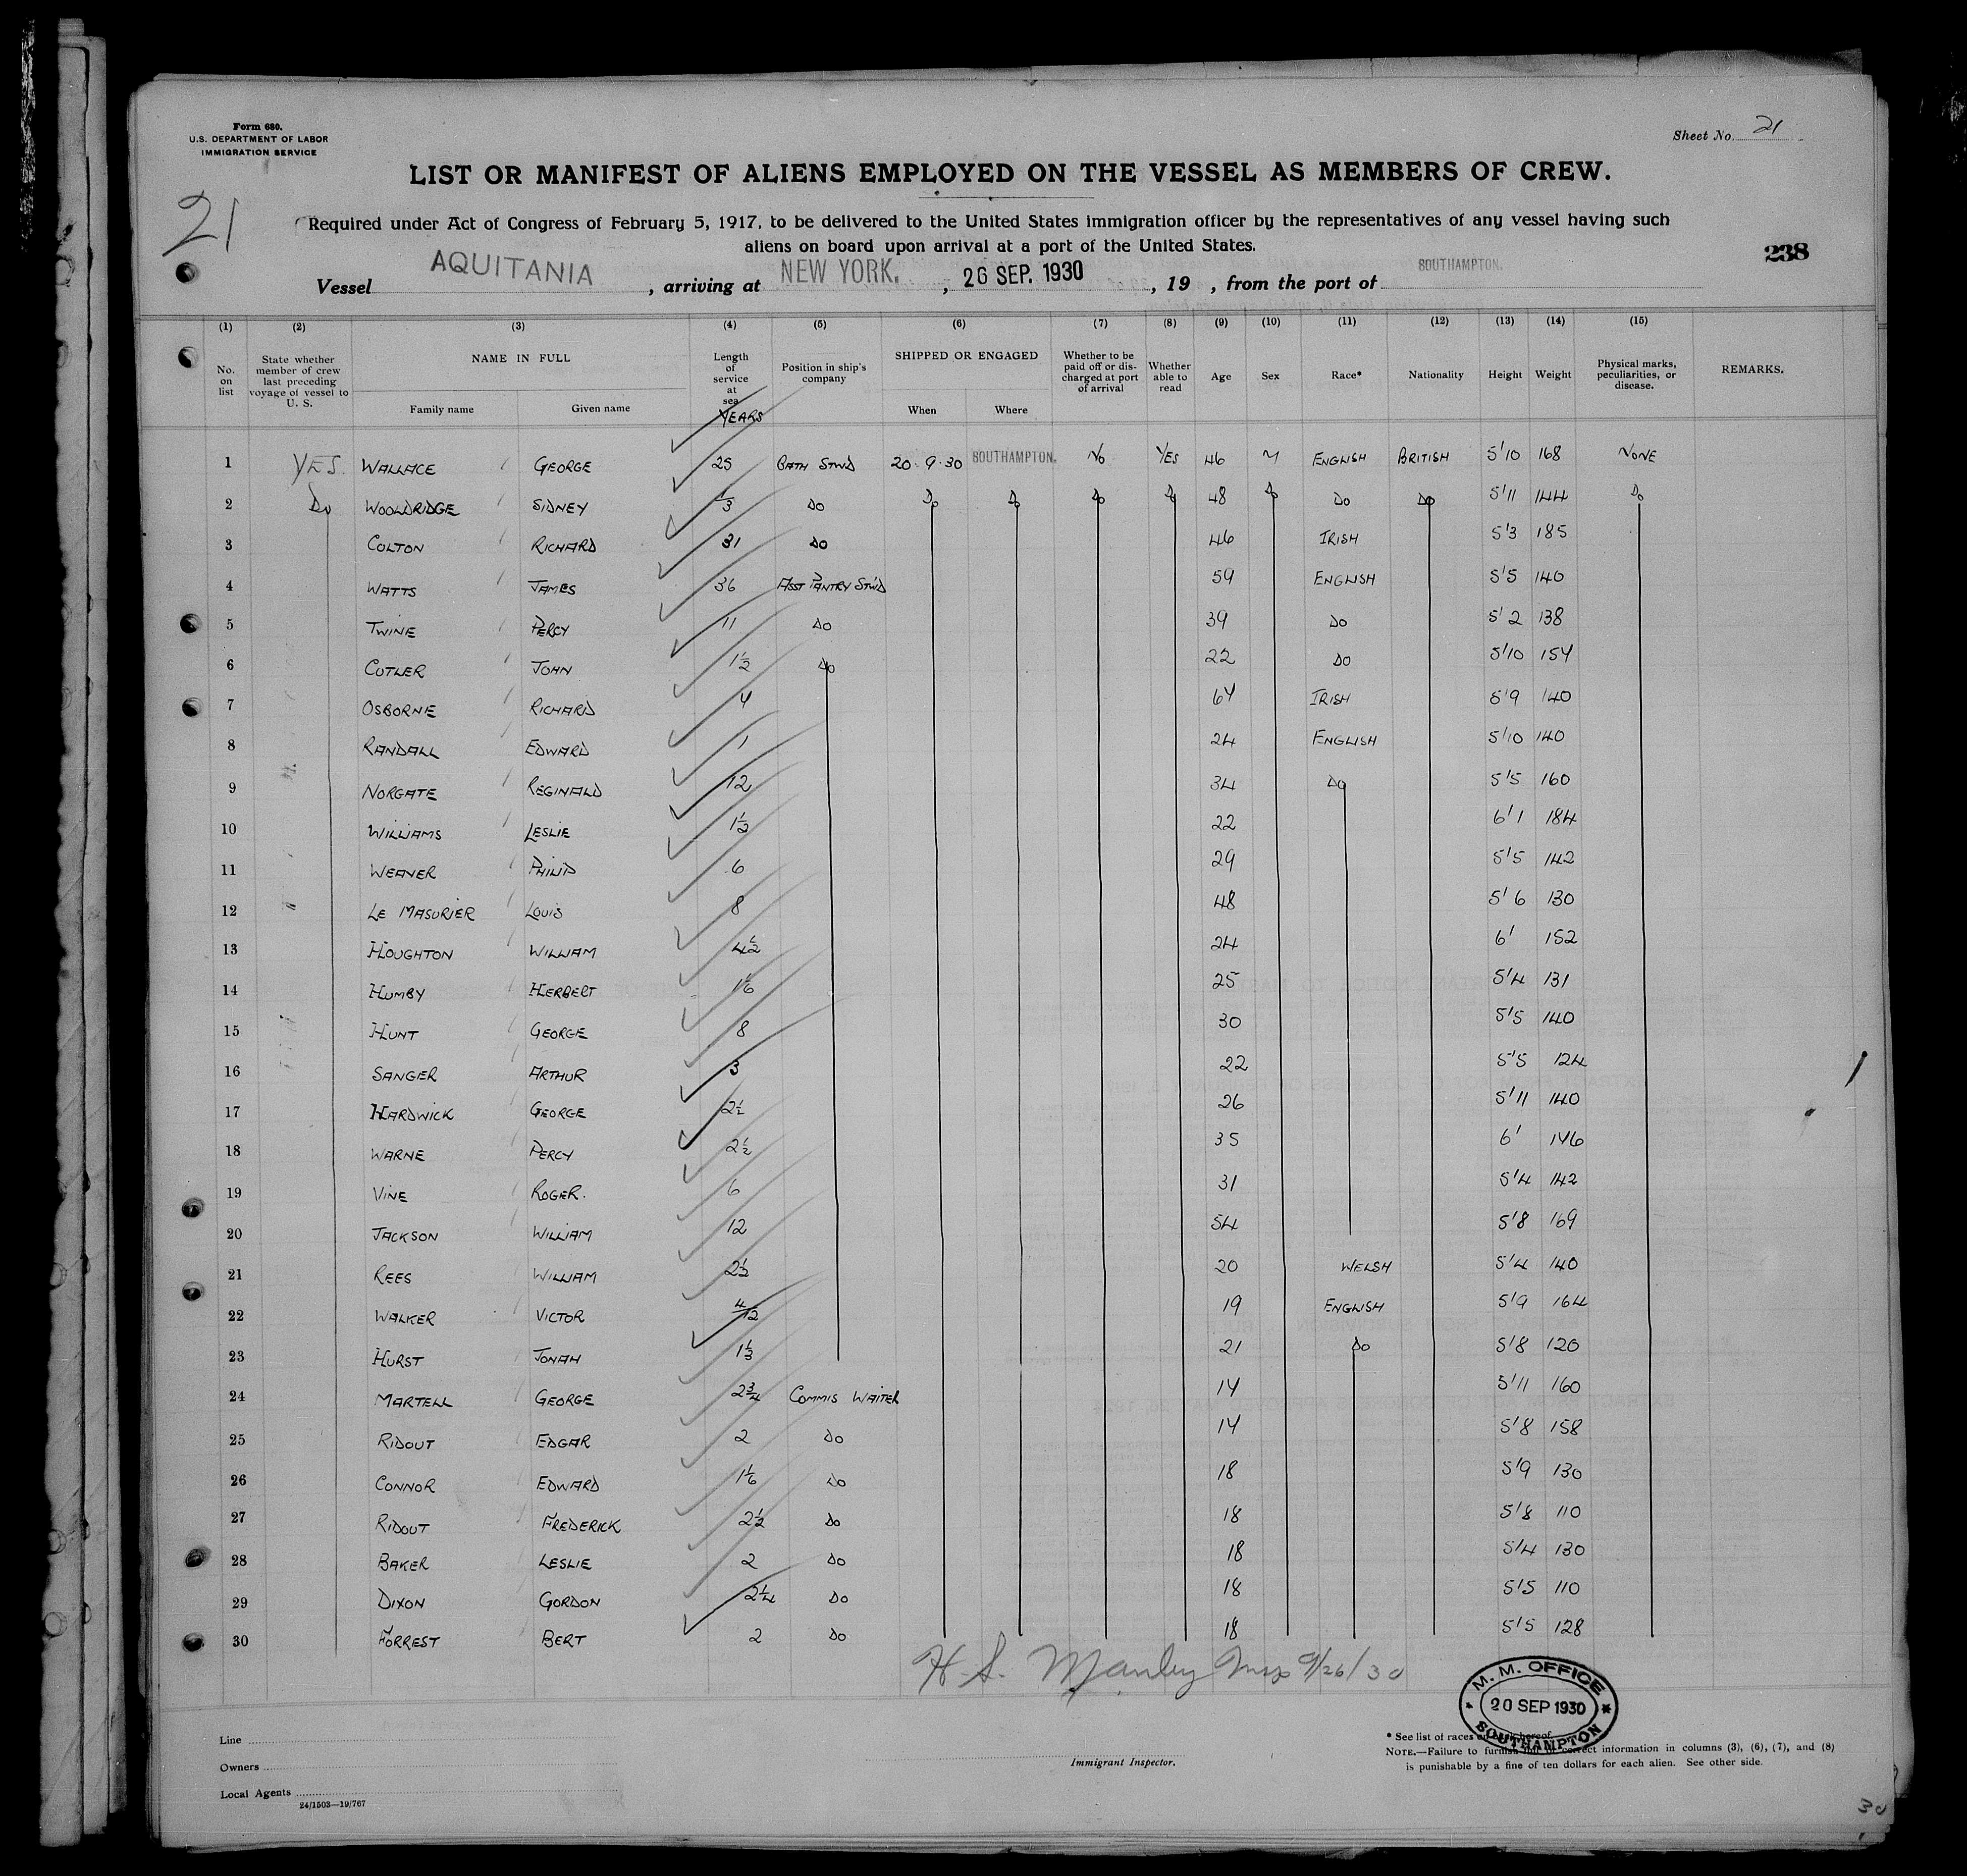 Form 680.
U.S. DEPARTMENT OF LABOR
IMMIGRATION SERVICE
Sheet No. 21
LIST OR MANIFEST OF ALIENS EMPLOYED ON THE VESSEL AS MEMBERS OF CREW.
21
Required under Act of Congress of February 5, 1917, to be delivered to the United States immigration officer by the representatives of any vessel having such
aliens on board upon arrival at a port of the United States.
238
Vessel AQUITANIA, arriving at NEW YORK., 26 SEP. 1930, 19 , from the port of SOUTHAMPTON.
(1) (2) (3) (4) (5) (6) (7) (8) (9) (10) (11) (12) (13) (14) (15)
No. on list State whether member of crew last preceding voyage of vessel to U. S. NAME IN FULL Family name Given name Length of service at sea YEARS Position in ship's company SHIPPED OR ENGAGED When Where Whether to be paid off or discharged at port of arrival Whether able to read Age Sex Race* Nationality Height Weight Physical marks, peculiarities, or disease. REMARKS.
1 YES. WALLACE GEORGE 25 BATH STWD 20.9.30 SOUTHAMPTON. NO YES 46 M ENGLISH BRITISH 5'10 168 NONE
2 Do WOOLDRIDGE SIDNEY 1/3 DO Do Do Do Do 48 Do DO DO 5'11 144 Do
3 COLTON RICHARD 31 DO 46 IRISH 5'3 185
4 WATTS JAMES 36 ASST PANTRY STWD 59 ENGLISH 5'5 140
5 TWINE PERCY 11 DO 39 DO 5'2 138
6 CUTLER JOHN 1½ DO 22 DO 5'10 154
7 OSBORNE RICHARD 4 64 IRISH 5'9 140
8 RANDALL EDWARD 1 24 ENGLISH 5'10 140
9 NORGATE REGINALD 12 34 DO 5'5 160
10 WILLIAMS LESLIE 1½ 22 6'1 184
11 WEAVER PHILIP 6 29 5'5 142
12 LE MASURIER LOUIS 8 48 5'6 130
13 HOUGHTON WILLIAM 4½ 24 6' 152
14 HUMBY HERBERT 1/6 25 5'4 131
15 HUNT GEORGE 8 30 5'5 140
16 SANGER ARTHUR 3 22 5'5 124
17 HARDWICK GEORGE 2½ 26 5'11 140
18 WARNE PERCY 2½ 35 6' 146
19 VINE ROGER. 6 31 5'4 142
20 JACKSON WILLIAM 12 54 5'8 169
21 REES WILLIAM 2½ 20 WELSH 5'4 140
22 WALKER VICTOR 4/12 19 ENGLISH 5'9 164
23 HURST JONAH 1⅓ 21 DO 5'8 120
24 MARTELL GEORGE 2¾ COMMIS WAITER 14 5'11 160
25 RIDOUT EDGAR 2 DO 14 5'8 158
26 CONNOR EDWARD 1⅙ DO 18 5'9 130
27 RIDOUT FREDERICK 2½ DO 18 5'8 110
28 BAKER LESLIE 2 DO 18 5'4 130
29 DIXON GORDON 2¼ DO 18 5'5 110
30 FORREST BERT 2 DO 18 5'5 128
H. S. Manley Insp 9/26/30
M. M. OFFICE
20 SEP 1930
SOUTHAMPTON
Line
Owners
Local Agents
24/1503—19/767
Immigrant Inspector.
* See list of races on back hereof.
NOTE.—Failure to furnish full or correct information in columns (3), (6), (7), and (8)
is punishable by a fine of ten dollars for each alien. See other side.
30